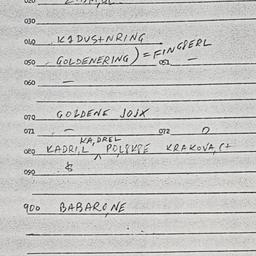 020
030
040 KADUSTNRING
050 GOLDENERING ) = FINGPERL
051 —
060 —
070 GOLDENE JOJX
071 — 072
KA,DREL
080 KADRI,L POLSKPE KRAKOVA,C+
090 $
900 BABARONE